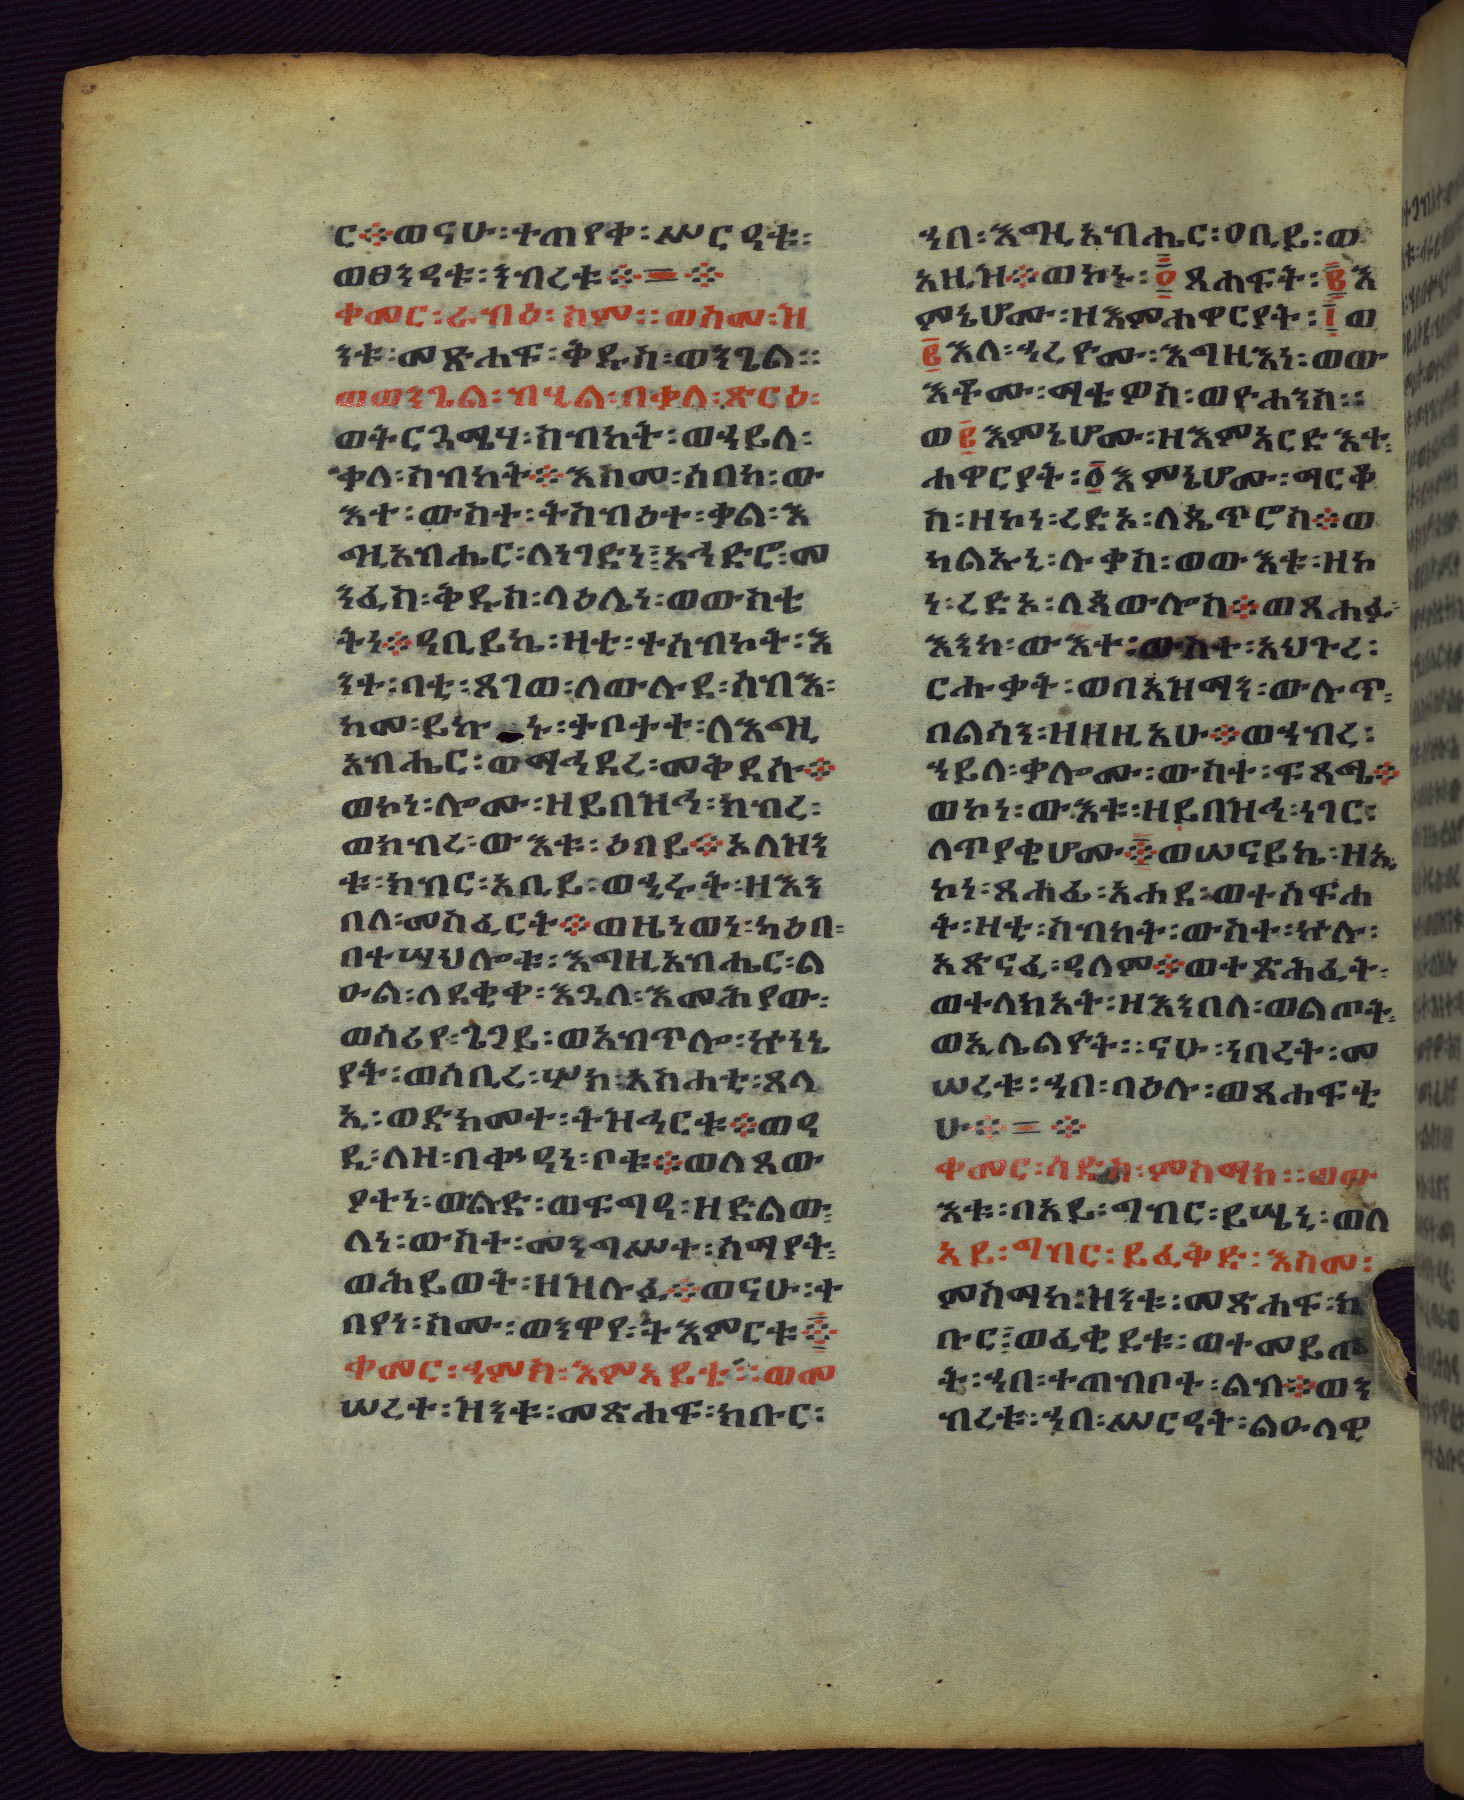 ር፨ወናሁ፡ተጠየቀ፡ሥርዓቱ፡
ወፀንዓቱ፡ንብረቱ፨=፨
ቀመር፡ራብዕ፡ስም፡፡ወስመ፡ዝ
ንቱ፡መጽሐፍ፡ቅዱስ፡ወንጌል፡፡
ወወንጌል፡ብሂል፡በቃለ፡ጽርዕ፡
ወትርጓሜሃ፡ስብከት፡ወኃይለ፡
ቃለ፡ስብከት፨እስመ፡ሰበከ፡ው
እተ፡ውስተ፡ትስብዕተ፡ቃል፡እ
ግዚአብሔር፡ለነገድነ፡አኅድሮ፡መ
ንፈስ፡ቅዱስ፡ላዕሌነ፡ወውስቴ
ትነ፨ዓቢይኬ፡ዛቲ፡ተሰብኮት፡እ
ንተ፡ባቲ፡ጸገወ፡ለውሉደ፡ሰብእ፡
ከመ፡ይኩኑ፡ታቦተተ፡ለእግዚ
አብሔር፡ወማኅደረ፡መቅደሱ፨
ወኮነ፡ሎሙ፡ዘይበዝኅ፡ክብረ፡
ወክብረ፡ውእቱ፡ዕበይ፨አለዝን
ቱ፡ክብር፡አቢይ፡ወኂሩት፡ዘእን
በለ፡መስፈርት፨ወዜነወነ፡ካዕበ፡
በተሣህሎቱ፡እግዚአብሔር፡ል
ዑል፡ለደቂቀ፡እጓለ፡እመሕያው፡
ወሰሪየ፡ጌጋይ፡ወአብጥሎ፡ኵነኔ
ያት፡ወሰቢረ፡ሦክ፡አስሐቲ፡ጸላ
ኢ፡ወድክመተ፡ትዝኅርቱ፨ወዓ
ዲ፡ለዘ፡በቍዓነ፡ቦቱ፨ወለጸው
ያተነ፡ውሉድ፡ወፍግዓ፡ዘድልው፡
ለነ፡ውስተ፡መንግሥተ፡ሰማያት፡
ወሕይወት፡ዘዝሉፈ፨ወናሁ፡ተ
በየነ፡ስሙ፡ወንዋየ፡ትእምርቱ፨
ቀመር፡ኃምስ፡እምአይቴ፡፡ወመ
ሠረተ፡ዝንቱ፡መጽሐፍ፡ክቡር፡
ኀበ፡እግዚአብሔር፡ዐቢይ፡ወ
አዚዝ፨ወኮኑ፡፬ጸሐፍት፡፪እ
ምኔሆሙ፡ዘእምሐዋርያት፡፲ወ
፪እለ፡ኀረዮሙ፡እግዚእነ፡ወው
እቶሙ፡ማቴዎስ፡ወዮሐንስ፡፡
ወ፪እምኔሆሙ፡ዘእምአርድእተ፡
ሐዋርያት፡፩እምኔሆሙ፡ማርቆ
ስ፡ዘኮነ፡ረድአ፡ለጴጥሮስ፨ወ
ካልኡኒ፡ሉቃስ፡ወውእቱ፡ዘኮ
ነ፡ረድአ፡ለጳውሎስ፨ወጸሐፈ፡
እንከ፡ውእተ፡ውስተ፡አህጉረ፡
ርሑቃት፡ወበአዝማን፡ውሉጥ፡
በልሳን፡ዘዘዚአሁ፨ወኀብረ፡
ኀይለ፡ቃሎሙ፡ውስተ፡ፍጻሜ፨
ወኮነ፡ውእቱ፡ዘይበዝኅ፡ነገር፡
ለጥያቂሆሙ፨ወሠናይኬ፡ዘኢ
ኮነ፡ጸሐፊ፡አሐደ፡ወተሰፍሐ
ት፡ዛቲ፡ስብከት፡ውስተ፡ኵሉ፡
አጽናፈ፡ዓለም፨ወተጽሕፈት፡
ወተለክአት፡ዘእንበለ፡ወልጦት፡
ወኢሌልዮት፡፡ናሁ፡ነበረት፡መ
ሠረቱ፡ኀበ፡ባዕሉ፡ወጸሐፍቲ
ሁ፨=፨
ቀመር፡ሳድስ፡ምስማክ፡፡ወው
እቱ፡በአይ፡ግብር፡ይሤኒ፡ወለ
አይ፡ግብር፡ይፈቅድ፡እስመ፡
ምስማከ፡ዝንቱ፡መጽሐፍ፡ክ
ቡር፡ወፈቂደቱ፡ወተመይጦ
ት፡ኀበ፡ተጠብቦት፡ልብ፨ወን
ብረቱ፡ኀበ፡ሥርዓት፡ልዑላዊ